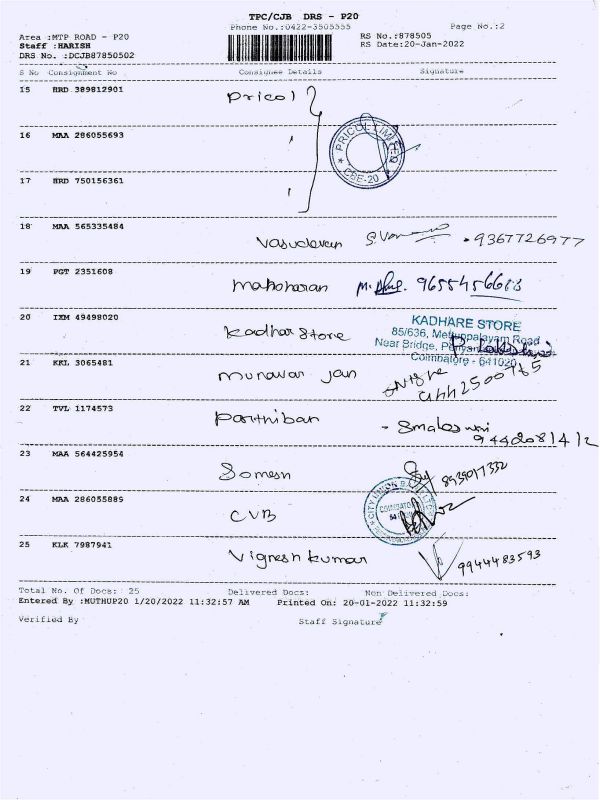 TPC/CJB DRS - P20
Phone No.:0422-3505555 Page No.:2
Area :MTP ROAD - P20 RS No.:878505
Staff :HARISH RS Date:20-Jan-2022
DRS No. :DCJB87850502
S No Consignment No Consignee Details Signature
15 HRD 389812901 Pricol
16 MAA 286055693
PRICOL LIMITED
CBE-20
17 HRD 750156361
18 MAA 565335484
Vasudevan 9367726977
19 PGT 2351608
Manoharan 9655456663
20 IXM 49498020
Kadhar Store
KADHARE STORE
85/636, Mettuppalayam Road
Near Bridge,
Coimbatore - 641020
21 KKL 3065481
Munavar Jan
22 TVL 1174573
Parthiban
9442081412
23 MAA 564425954
Somesh
24 MAA 286055889
CVB
CITY UNION
25 KLK 7987941
Vignesh kumar 9944483593
Total No. Of Docs: 25 Delivered Docs: Non Delivered Docs:
Entered By :MUTHUP20 1/20/2022 11:32:57 AM Printed On: 20-01-2022 11:32:59
Verified By Staff Signature